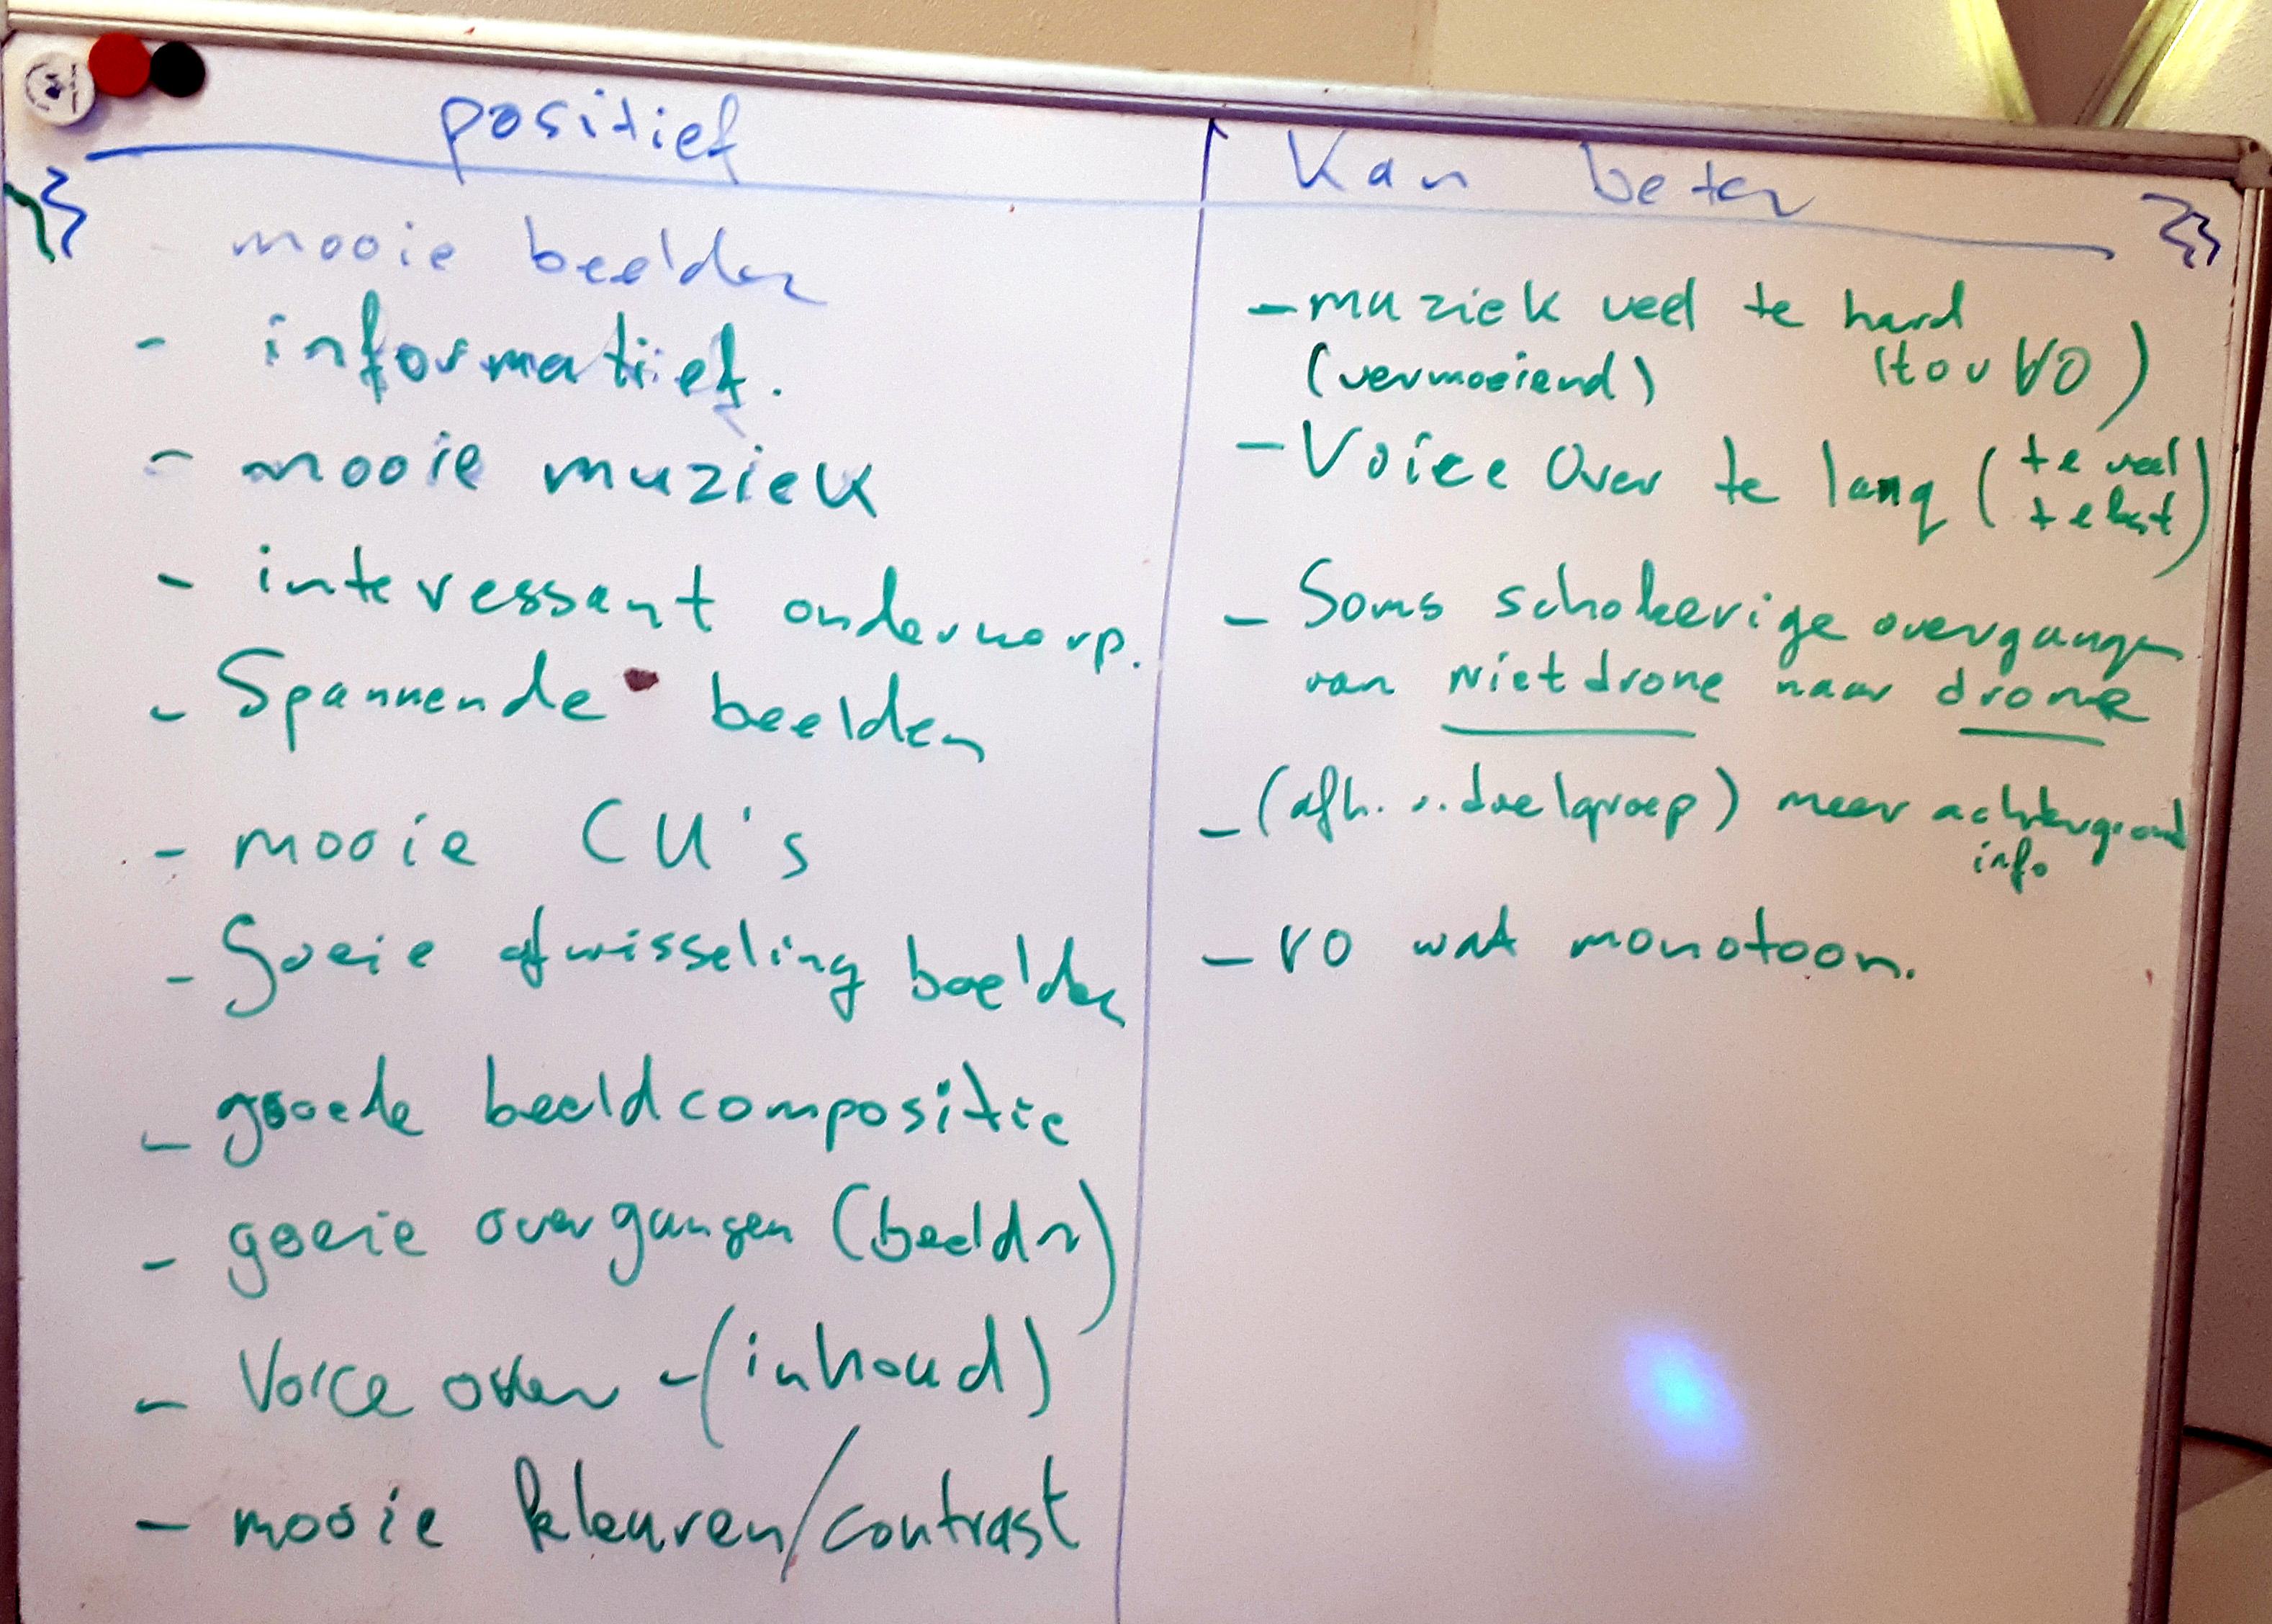 positief
mooie beelden
- informatief.
- mooie muziek
- interessant onderworp.
- Spannende beelden
- mooie CU's
- Goeie afwisseling beelden
- goede beeldcompositie
- goeie overgangen (beeldn)
- Voice over - (inhoud)
- mooie kleuren/contrast
Kan beter
- muziek veel te hard
(vermoeiend) (tov VO)
- Voice Over te lang (te veel
tekst)
- Soms schokerige overgangen
van Niet drone naar drone
- (afh. v. doelgroep) meer achtergrond
info
- VO wat monotoon.